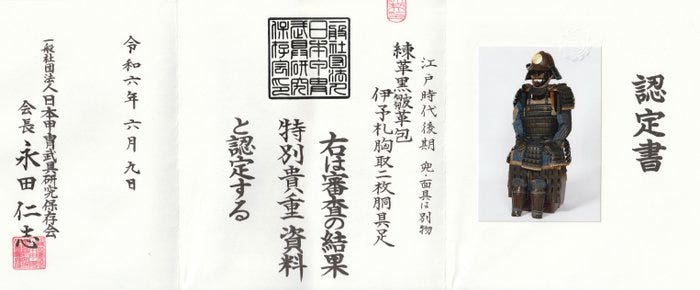 認定書
江戸時代後期 兜・面具は別物
練革黒皺革包
伊予札胸取二枚胴具足
右は審査の結果
特別貴重 資料
と認定する
一般社団法人
日本甲冑
武具研究
保存会印
令和六年 六月 九日
一般社団法人日本甲冑武具研究保存会
会長 永田仁志